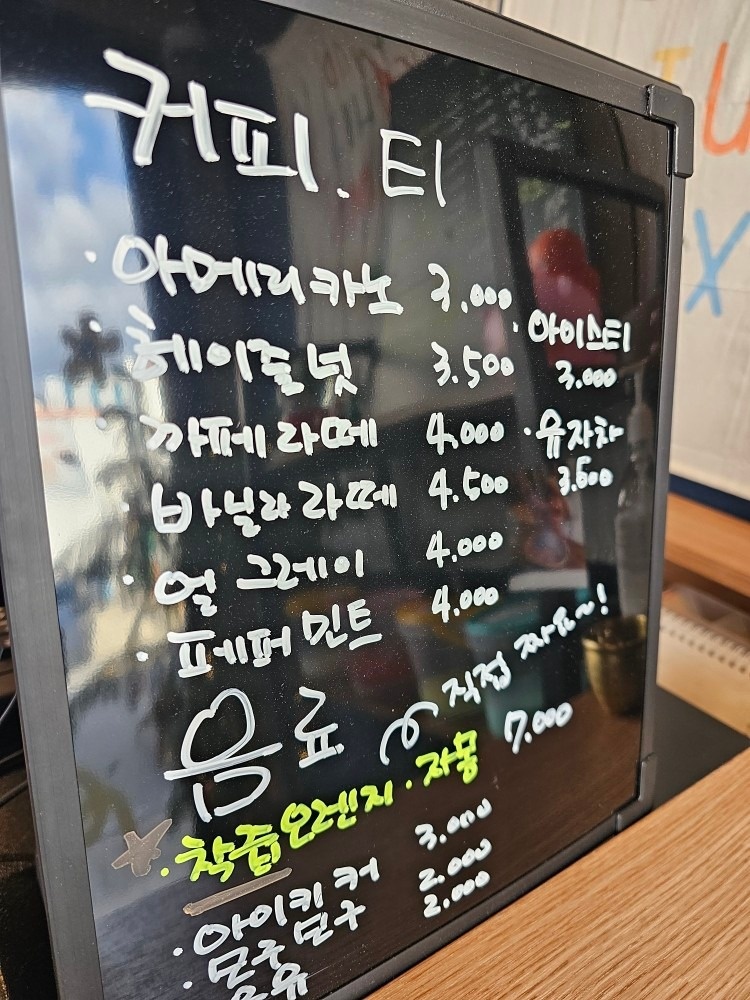 커피.티
· 아메리카노 3,000
· 헤이즐넛 3.500
까페라떼 4,000
바닐라라떼 4.500
· 얼그레이 4,000
· 페퍼민트 4,000
· 아이스티
3,000
· 유자차
3,500
음료
직접 짜요~!
· 착즙오렌지·자몽 7,000
· 암이킵커 3.000
2.000
· 우유 2.000